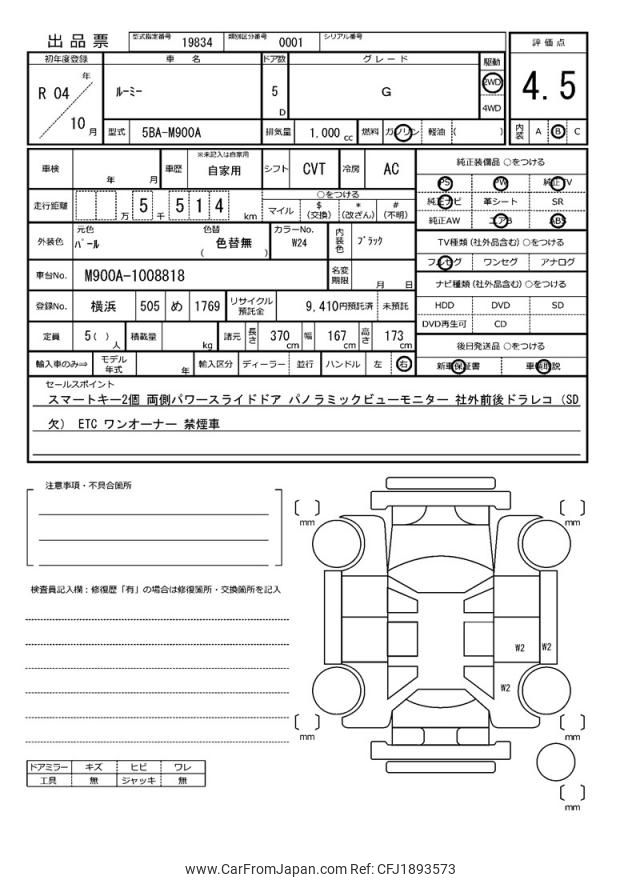 出品票 型式指定番号 19834 類別区分番号 0001 シリアル番号
評価点
4.5
内装 A B C
初年度登録 車名 ドア数 グレード 駆動
R 04 年 10 月
ルーミー 5 D G 2WD 4WD
型式 5BA-M900A 排気量 1.000 cc 燃料 ガソリン 軽油 ( )
車検 年 月 車歴 ※未記入は自家用 自家用 シフト CVT 冷房 AC
走行距離 万 5 千 5 1 4 km
○をつける
マイル $ (交換) * (改ざん) # (不明)
外装色 元色 パール 色替 ( 色替無 ) カラーNo. W24 内装色 ブラック
車台No. M900A-1008818 名変期限 月 日
登録No. 横浜 505 め 1769 リサイクル預託金 9,410円預託済 未預託
定員 5( ) 人 積載量 kg 諸元 長さ 370 cm 幅 167 cm 高さ 173 cm
輸入車のみ⇒ モデル年式 年 輸入区分 ディーラー 並行 ハンドル 左 右
純正装備品 ○をつける
PS PW 純正TV
純正ナビ 革シート SR
純正AW エアB ABS
TV種類 (社外品含む) ○をつける
フルセグ ワンセグ アナログ
ナビ種類 (社外品含む) ○をつける
HDD DVD SD
DVD再生可 CD
後日発送品 ○をつける
新車保証書 車輌取説
セールスポイント
スマートキー2個 両側パワースライドドア パノラミックビューモニター 社外前後ドラレコ (SD
欠) ETC ワンオーナー 禁煙車
注意事項・不具合箇所
検査員記入欄：修復歴「有」の場合は修復箇所・交換箇所を記入
ドアミラー キズ ヒビ ワレ
工具 無 ジャッキ 無
mm
mm
W2 W2
W2
mm
mm
mm
www.CarFromJapan.com Ref: CFJ1893573